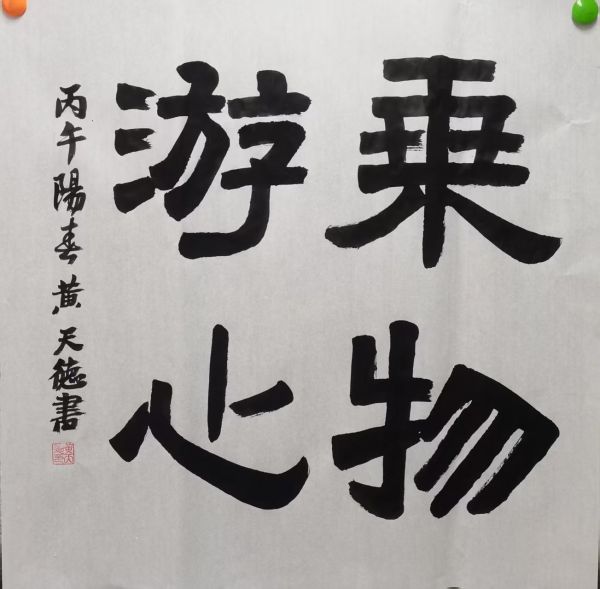 乘物
游心
丙午陽春黄天德書